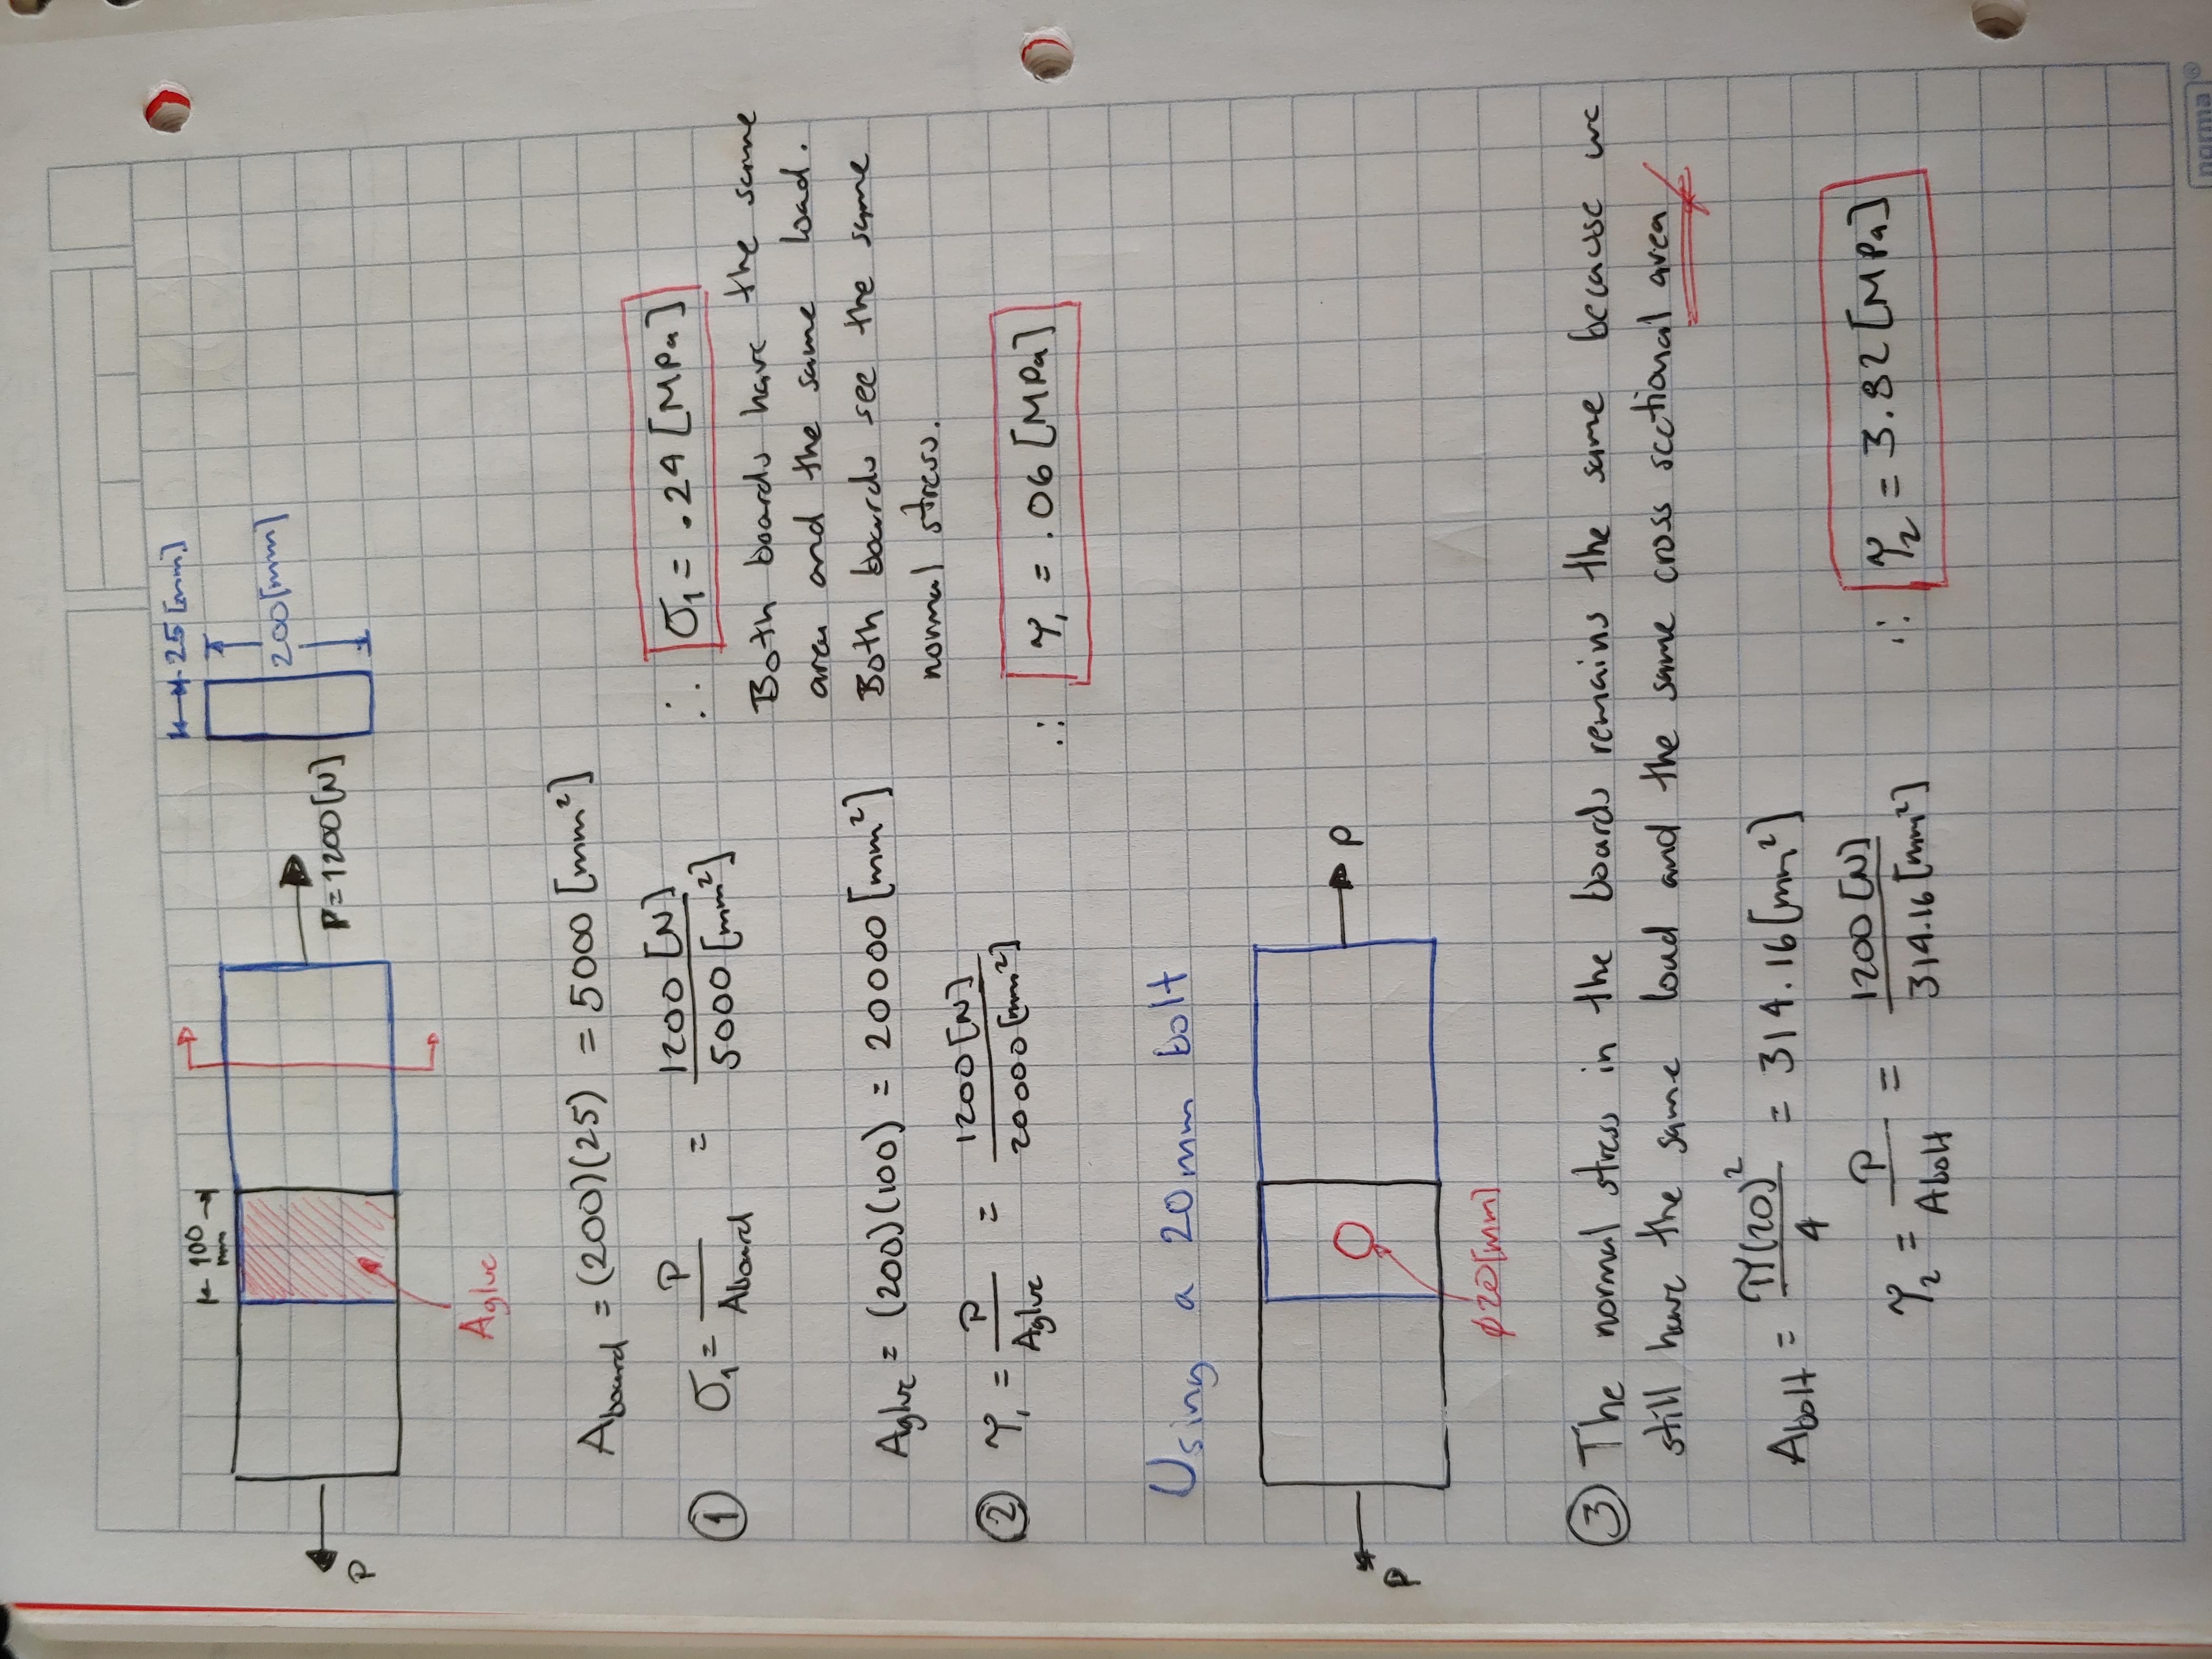 25[mm]
200[mm]
100
mm
P
P=1200[N]
Aglue
Aboard = (200)(25) = 5000 [mm²]
① σ₁ = P/Aboard = 1200[N]/5000[mm²] ∴ σ₁ = .24 [MPa]
Both boards have the same
area and the same load.
Both boards see the same
normal stress.
Aglue = (200)(100) = 20000 [mm²]
② τ₁ = P/Aglue = 1200[N]/20000[mm²] ∴ τ₁ = .06 [MPa]
Using a 20mm bolt
P
P
ϕ20[mm]
③ The normal stress in the boards remains the same because we
still have the same load and the same cross sectional area
Abolt = π(20)²/4 = 314.16[mm²]
τ₂ = P/Abolt = 1200[N]/314.16[mm²] ∴ τ₂ = 3.82 [MPa]
norma®